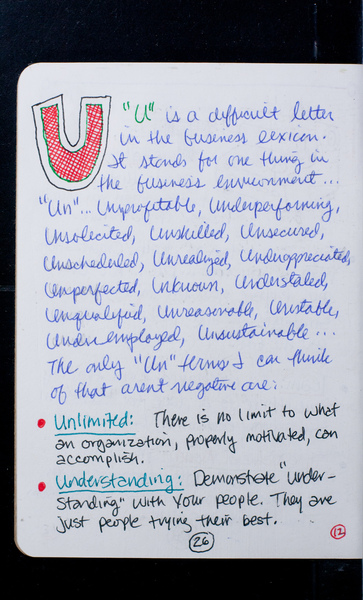 U
"U" is a difficult letter
in the business lexicon.
It stands for one thing in
the business environment...
"Un"... Unprofitable, Underperforming,
Unsolicited, Unskilled, Unsecured,
Unscheduled, Unrealized, Underappreciated,
Unperfected, Unknown, Understated,
Unqualified, Unreasonable, Unstable,
Underemployed, Unsustainable...
The only "Un" terms I can think
of that aren't negative are:
• Unlimited: There is no limit to what
an organization, properly motivated, can
accomplish.
• Understanding: Demonstrate "under-
standing" with your people. They are
just people trying their best.
26
12